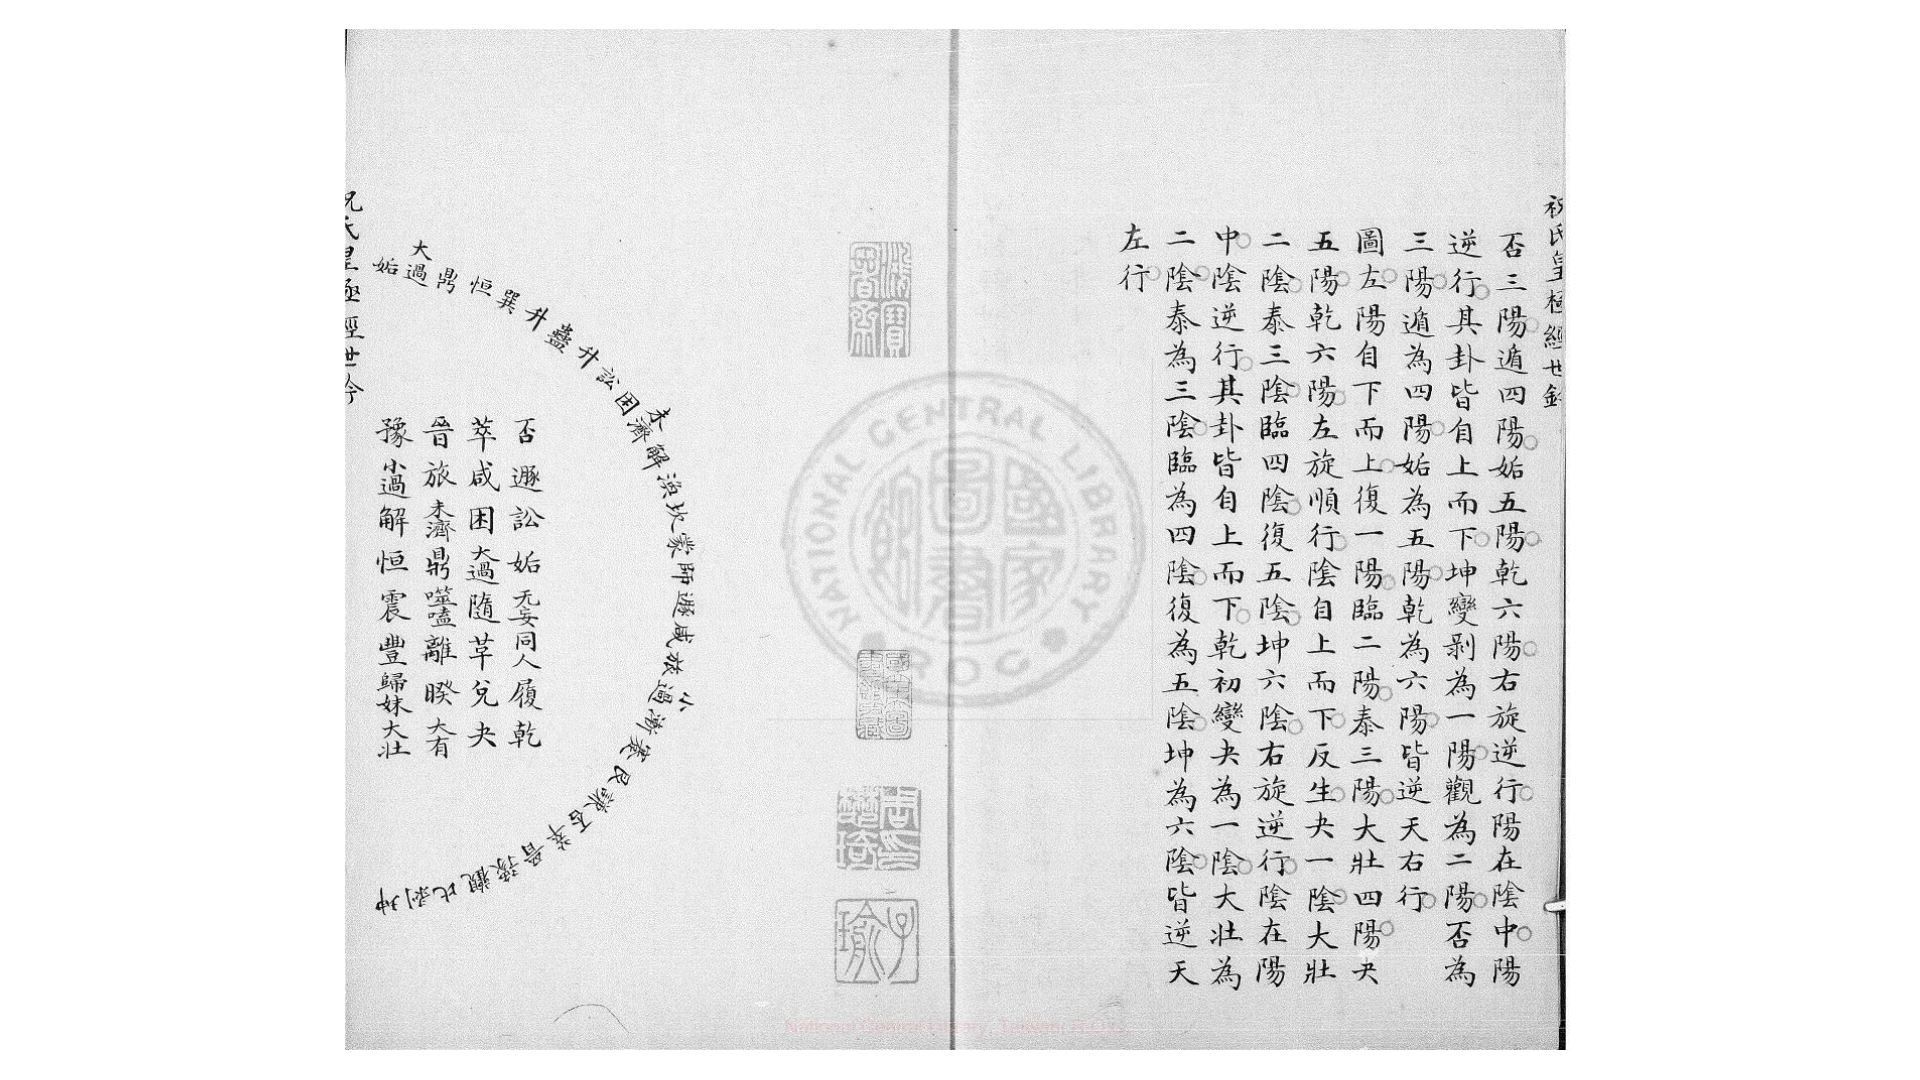 祝氏皇極經世鈐
否三陽遁四陽姤五陽乾六陽右旋逆行陽在陰中陽
逆行其卦皆自上而下坤變剥為一陽觀為二陽否為
三陽遁為四陽姤為五陽乾為六陽皆逆天右行
圖左陽自下而上復一陽臨二陽泰三陽大壯四陽夬
五陽乾六陽左旋順行陰自上而下反生夬一陰大壯
二陰泰三陰臨四陰復五陰坤六陰右旋逆行陰在陽
中陰逆行其卦皆自上而下乾初變夬為一陰大壯為
二陰泰為三陰臨為四陰復為五陰坤為六陰皆逆天
左行
NATIONAL CENTRAL LIBRARY
ROC
國家圖書館
子瑜
姤大過鼎恒巽井蠱升訟困未濟解渙坎蒙師遯咸旅小過漸蹇艮謙否萃晉豫觀比剥坤
否遯訟姤无妄同人履乾
萃咸困大過隨革兌夬
晉旅未濟鼎噬嗑離睽大有
豫小過解恒震豐歸妹大壯
祝氏皇極經世鈐
National Central Library, Taiwan, R.O.C